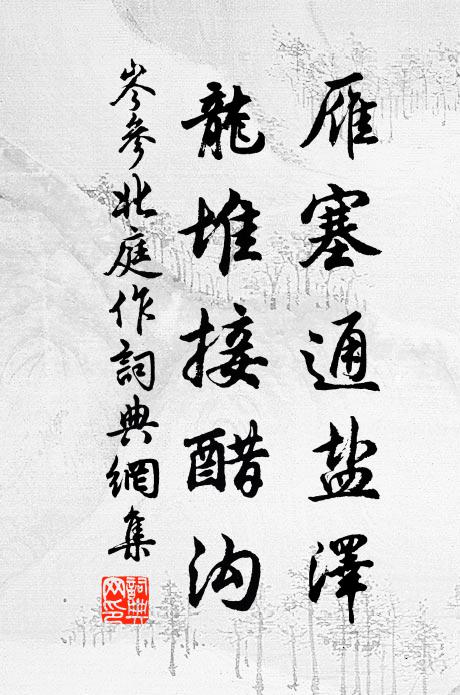 雁塞通盐澤
龍堆接醋沟
岑參北庭作詞典網集
詞典网印